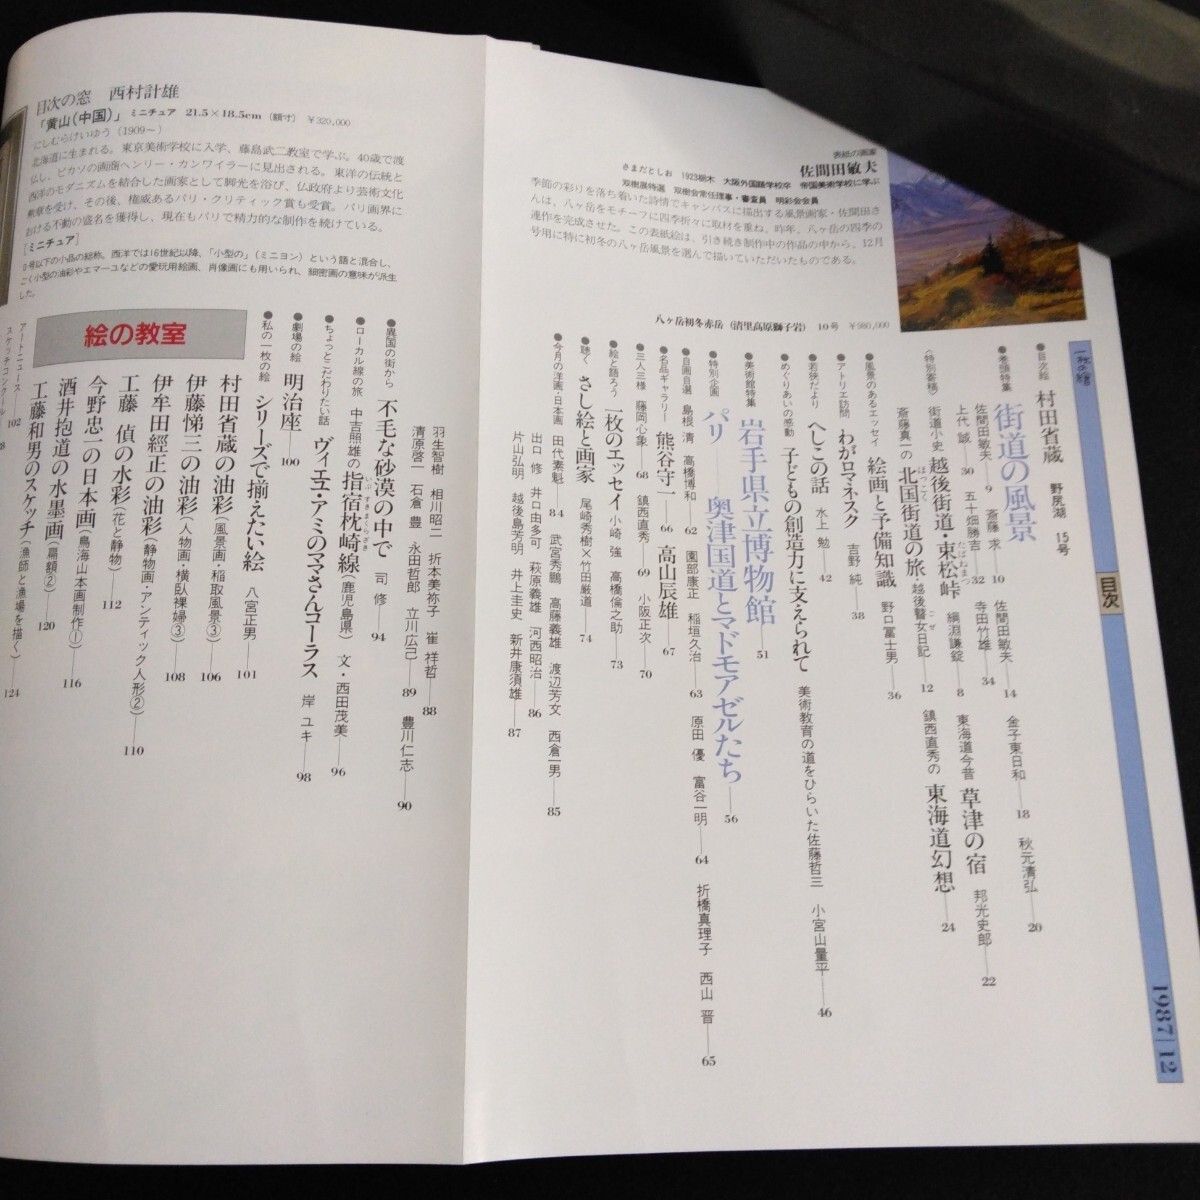 一枚の絵
目次
1987|12
●目次絵 村田省蔵 野尻湖 15号
●巻頭特集 街道の風景
佐間田敏夫—9 斎藤 求—10 佐間田敏夫—14 金子東日和—18 秋元清弘—20
上代 誠—30 五十畑勝吉—32 寺田竹雄—34
〈特別寄稿〉 街道小史 越後街道・東松峠 綱淵謙錠—8 東海道今昔 草津の宿 邦光史郎—22
たばねまつ
斎藤真一の 北国街道の旅・越後瞽女日記—12 鎮西直秀の 東海道幻想—24
ほっこく
ごぜ
●風景のあるエッセイ 絵画と予備知識 野口冨士男—36
●アトリエ訪問 わがロマネスク 吉野 純—38
●若狭だより へしこの話 水上 勉—42
●めぐりあいの感動 子どもの創造力に支えられて 美術教育の道をひらいた佐藤哲三 小宮山量平—46
●美術館特集 岩手県立博物館—51
●特別企画 パリ 奥津国道とマドモアゼルたち—56
●自画自選 島根 清 高橋博和—62 園部康正 稲垣久治—63 原田 優 富谷一明—64 折橋真理子 西山 晋—65
●名品ギャラリー 熊谷守一—66 高山辰雄—67
●三人三様 藤岡心象—68 鎮西直秀—69 小阪正次—70
●絵と語ろう 一枚のエッセイ 小崎 強 高橋倫之助—73
●聴く さし絵と画家 尾崎秀樹×竹田厳道—74
●今月の洋画・日本画 田代素魁—84 武宮秀鵬 高藤義雄 渡辺芳文 西倉一男—85
出口 修 井口由多可 萩原義雄 河西昭治—86
片山弘明 越後島芳明 井上圭史 新井康須雄—87
羽生智樹 相川昭二 折本美祢子 崔 祥哲—88
清原啓一 石倉 豊 永田哲郎 立川広己—89 豊川仁志—90
●異国の街から 不毛な砂漠の中で 司 修—94
●ローカル線の旅 中吉照雄の指宿枕崎線(鹿児島県) 文・西田茂美—96
いぶすきまくらざき
●ちょっとこだわりたい話 ヴィエエ・アミのママさんコーラス 岸 ユキ—98
●劇場の絵 明治座—100
●私の一枚の絵 シリーズで揃えたい絵 八宮正男—101
絵の教室
村田省蔵の油彩(風景画・稲取風景③)—106
伊藤悌三の油彩(人物画・横臥裸婦③)—108
伊牟田經正の油彩(静物画・アンティック人形②)—110
工藤 偵の水彩(花と静物)—112
今野忠一の日本画(鳥海山本画制作①)—116
酒井抱道の水墨画(扇額②)—120
工藤和男のスケッチ(漁師と漁場を描く)—124
アートニュース—102
表紙の画家
佐間田敏夫
さまだとしお 1923栃木 大阪外国語学校卒 帝国美術学校に学ぶ
双樹展特選 双樹会常任理事・審査員 明彩会会員
季節の彩りを落ち着いた詩情でキャンバスに描出する風景画家・佐間田さ
んは、八ヶ岳をモチーフに四季折々に取材を重ね、昨年、八ヶ岳の四季の
連作を完成させた。この表紙絵は、引き続き制作中の作品の中から、12月
号用に特に初冬の八ヶ岳風景を選んで描いていただいたものである。
八ヶ岳初冬赤岳(清里高原獅子岩) 10号 ¥980,000
目次の窓 西村計雄
「黄山(中国)」 ミニチュア 21.5×18.5cm (額寸) ¥320,000
にしむらけいゆう(1909〜)
北海道に生まれる。東京美術学校に入学、藤島武二教室で学ぶ。40歳で渡
仏し、ピカソの画商ヘンリー・カンワイラーに見出される。東洋の伝統と
西洋のモダニズムを結合した画家として脚光を浴び、仏政府より芸術文化
勲章を受け、その後、権威あるパリ・クリティック賞も受賞。パリ画界に
おける不動の盛名を獲得し、現在もパリで精力的な制作を続けている。
[ミニチュア]
0号以下の小品の総称。西洋では16世紀以降、「小型の」(ミニヨン)という語と混合し、
ごく小型の油彩やエマーユなどの愛玩用絵画、肖像画にも用いられ、細密画の意味が派生
した。